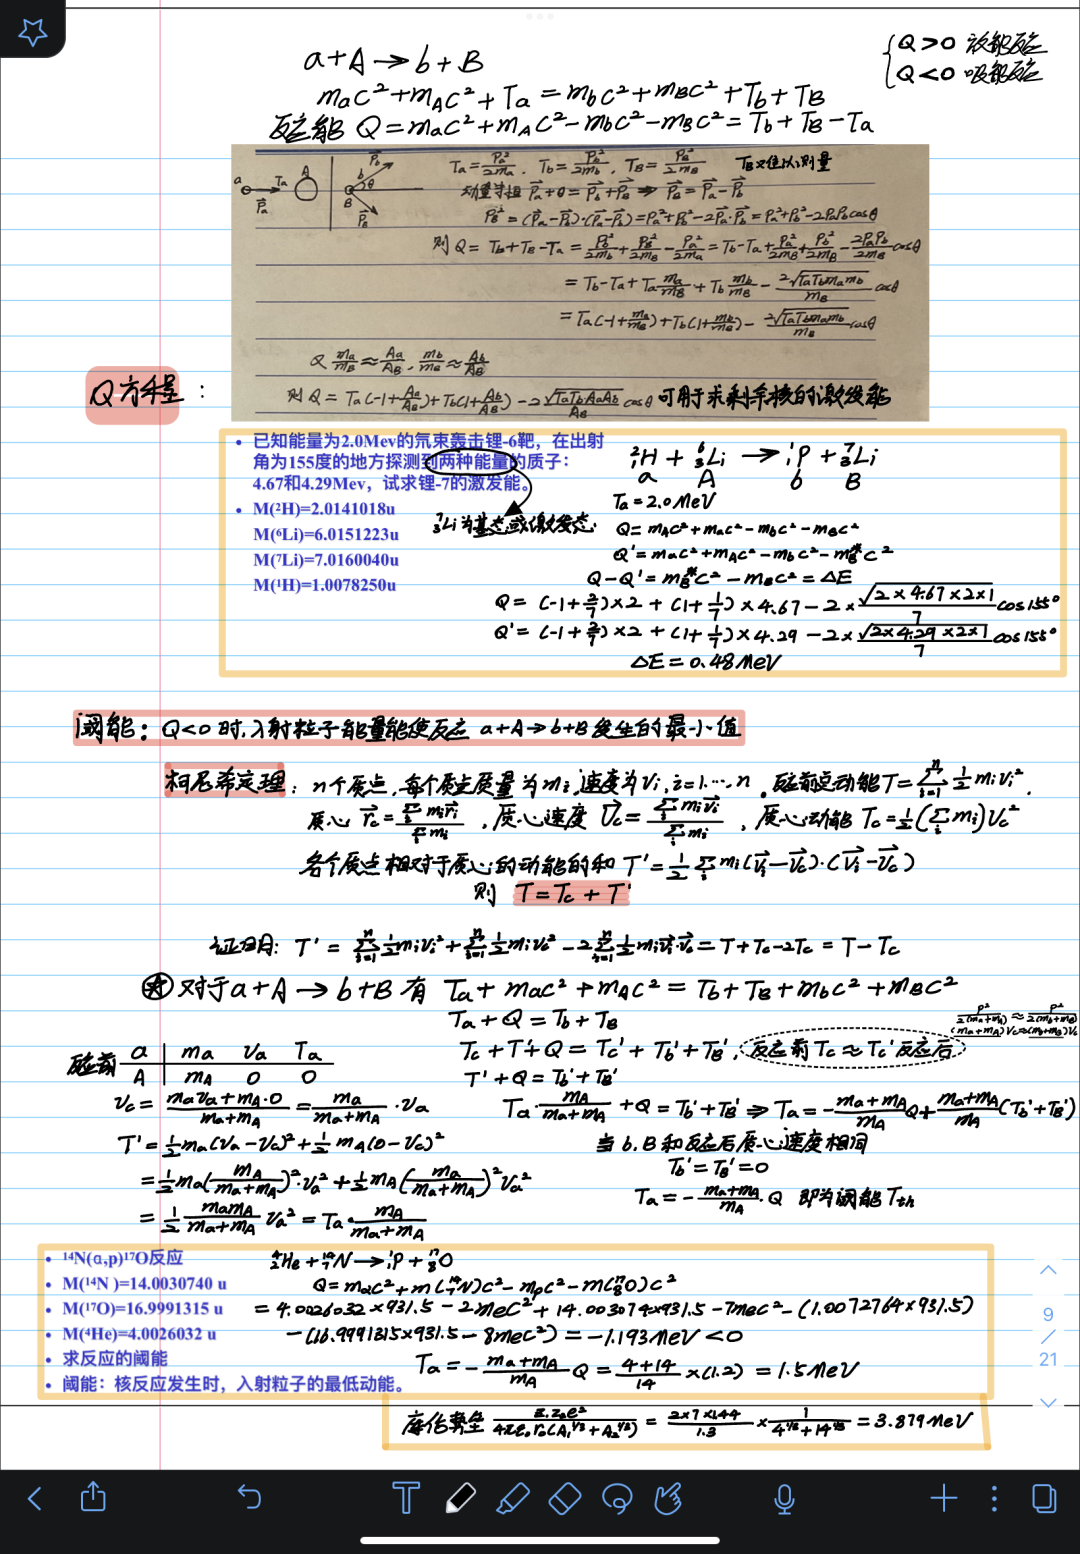 a+A→b+B
{Q>0 放能反应
Q<0 吸能反应
mac²+mAc²+Ta=mbc²+mBc²+Tb+TB
反应能 Q=mac²+mAc²-mbc²-mBc²=Tb+TB-Ta
a Ta Pa A b θ Pb B PB
Ta=Pa²/2ma, Tb=Pb²/2mb, TB=PB²/2mB TB难以测量
动量守恒 Pa+0=Pb+PB ⇒ PB=Pa-Pb
PB²=(Pa-Pb)·(Pa-Pb)=Pa²+Pb²-2Pa·Pb=Pa²+Pb²-2PaPbcosθ
则 Q=Tb+TB-Ta=Pb²/2mb+PB²/2mB-Pa²/2ma=Tb-Ta+Pa²/2mB+Pb²/2mB-2PaPb/2mB cosθ
=Tb-Ta+Ta ma/mB+Tb mb/mB-2√(TaTbmamb)/mB cosθ
=Ta(-1+ma/mB)+Tb(1+mb/mB)-2√(TaTbmamb)/mB cosθ
ma/mB≈Aa/AB, mb/mB≈Ab/AB
Q方程:
则 Q=Ta(-1+Aa/AB)+Tb(1+Ab/AB)-2√(TaTbAaAb)/AB cosθ 可用于求剩余核的激发能
• 已知能量为2.0Mev的氘束轰击锂-6靶，在出射
角为155度的地方探测到两种能量的质子：
4.67和4.29Mev，试求锂-7的激发能。
• M(²H)=2.0141018u
M(⁶Li)=6.0151223u
M(⁷Li)=7.0160040u
M(¹H)=1.0078250u
⁷₃Li为基态或激发态.
²₁H+⁶₃Li→¹₁P+⁷₃Li
a A b B
Ta=2.0MeV
Q=mAc²+mac²-mbc²-mBc²
Q'=mac²+mAc²-mbc²-mB*c²
Q-Q'=mB*c²-mBc²=ΔE
Q=(-1+2/7)×2+(1+1/7)×4.67-2×√(2×4.67×2×1)/7 cos155°
Q'=(-1+2/7)×2+(1+1/7)×4.29-2×√(2×4.29×2×1)/7 cos155°
ΔE=0.48MeV
阈能: Q<0时,入射粒子能量能使反应 a+A→b+B发生的最小值
柯尼希定理: n个质点,每个质点质量为mi,速度为vi,i=1…n. 碰前总动能T=Σⁿᵢ₌₁ ½mivi².
质心 rc=Σmiri/Σmi, 质心速度 Vc=Σmivi/Σmi, 质心动能 Tc=½(Σmi)Vc²
各个质点相对于质心的动能的和 T'=½Σmi(vi-vc)·(vi-vc)
则 T=Tc+T'
证明: T'=Σⁿᵢ₌₁½mivi²+Σⁿᵢ₌₁½mivc²-2Σⁿᵢ₌₁½mivi·vc=T+Tc-2Tc=T-Tc
对于a+A→b+B有 Ta+mac²+mAc²=Tb+TB+mbc²+mBc²
Ta+Q=Tb+TB
P²/2(ma+mA)≈P²/2(mb+mB)
(ma+mA)Vc≈(mb+mB)Vc
Tc+T'+Q=Tc'+Tb'+TB', 反应前Tc≈Tc'反应后
T'+Q=Tb'+TB'
碰前 a ma va Ta
A mA 0 0
vc=(mava+mA·0)/(ma+mA)=ma/(ma+mA)·va
T'=½ma(va-vc)²+½mA(0-vc)²
=½ma(mA/(ma+mA))²·va²+½mA(ma/(ma+mA))²va²
=½ mamA/(ma+mA) va²=Ta·mA/(ma+mA)
Ta·mA/(ma+mA)+Q=Tb'+TB' ⇒ Ta=-(ma+mA)/mA Q+(ma+mA)/mA(Tb'+TB')
当b.B和反应后质心速度相同
Tb'=TB'=0
Ta=-(ma+mA)/mA·Q 即为阈能Tth
• ¹⁴N(α,p)¹⁷O反应
• M(¹⁴N )=14.0030740 u
• M(¹⁷O)=16.9991315 u
• M(⁴He)=4.0026032 u
• 求反应的阈能
• 阈能：核反应发生时，入射粒子的最低动能。
⁴₂He+¹⁴₇N→¹₁P+¹⁷₈O
Q=mαc²+m(¹⁴₇N)c²-mpc²-m(¹⁷₈O)c²
=4.0026032×931.5-2mec²+14.003074×931.5-7mec²-(1.0072764×931.5)
-(16.9991315×931.5-8mec²)=-1.193MeV<0
Ta=-(ma+mA)/mA Q=(4+14)/14×(1.2)=1.5MeV
库伦势垒 z₁z₂e²/4πε₀r₀(A₁^1/3+A₂^1/3)=2×7×1.44/1.3×1/(4^1/3+14^1/3)=3.879MeV
9
/
21
T